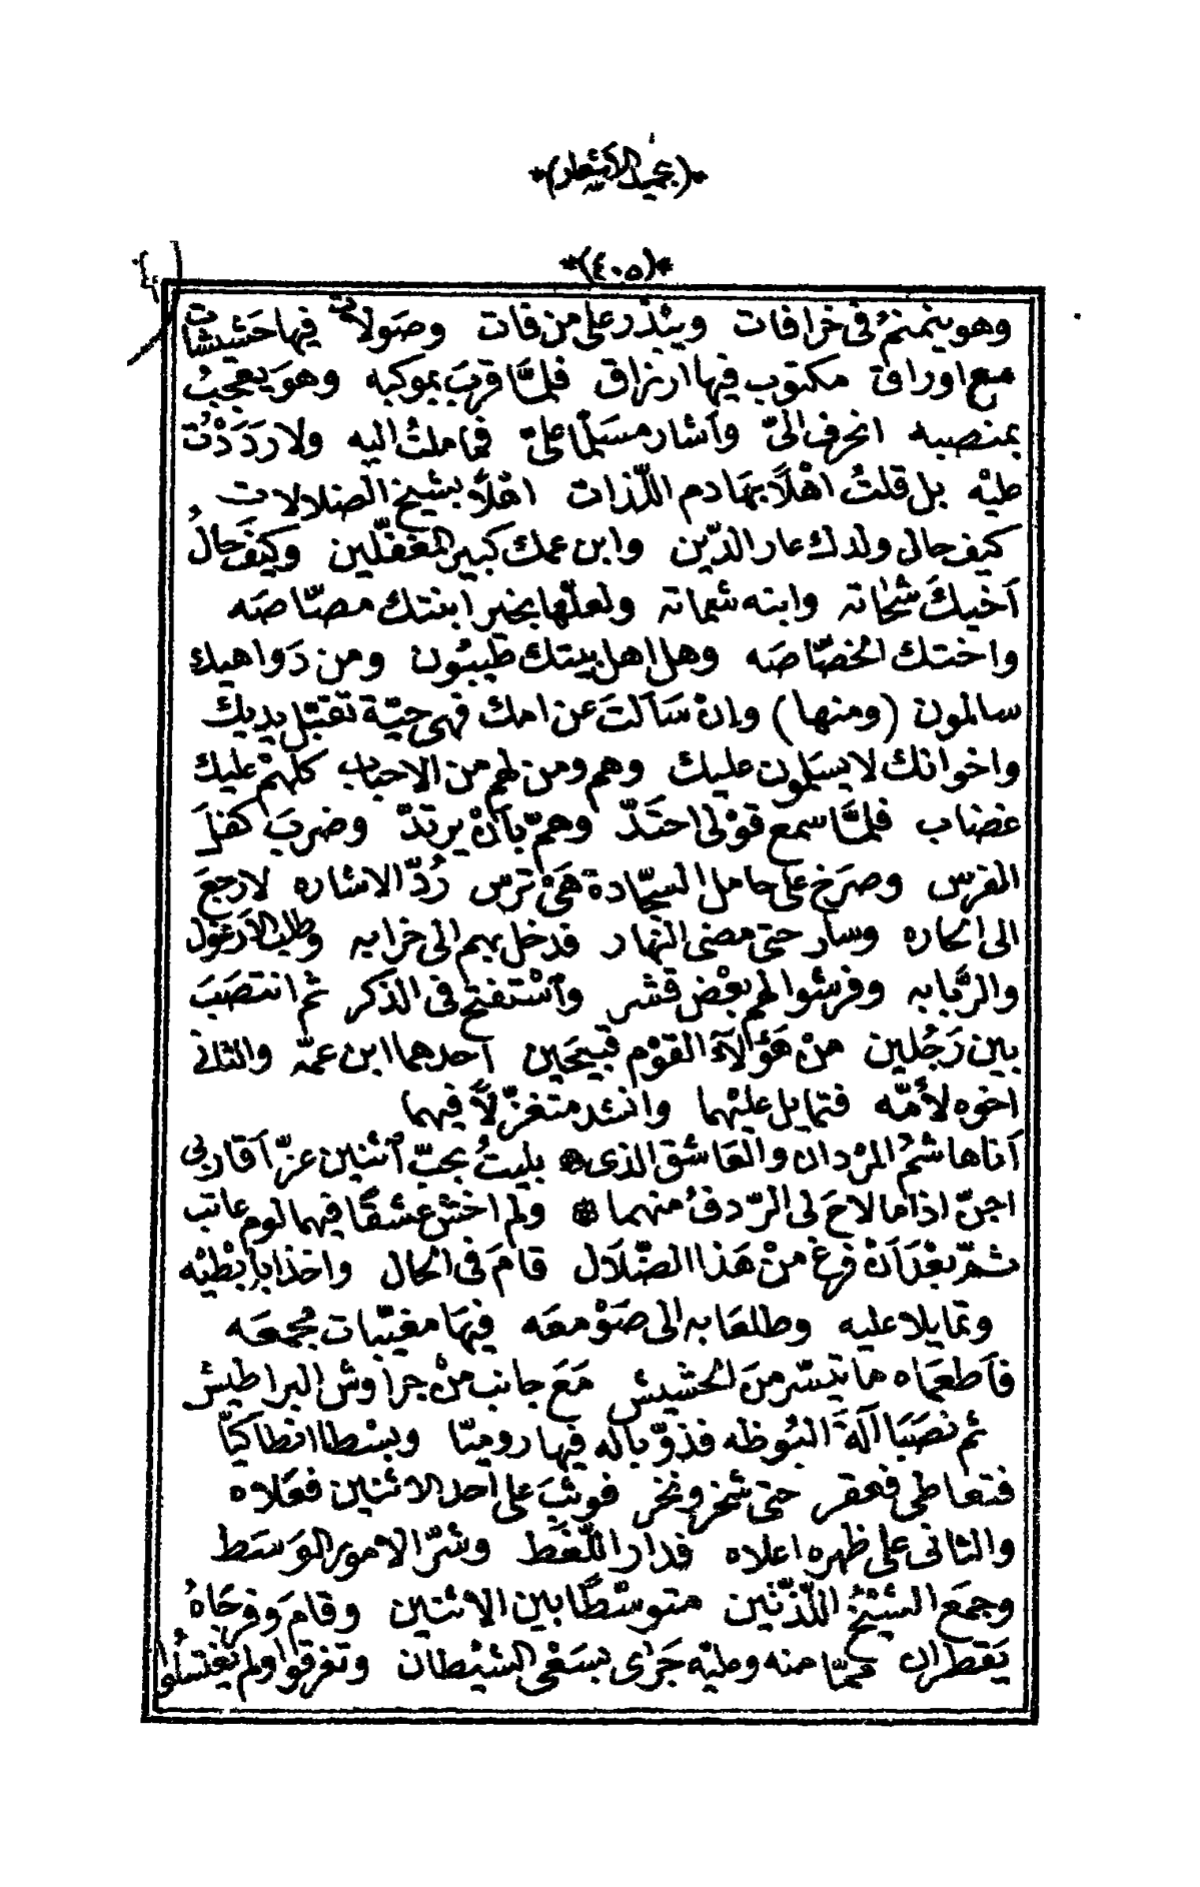 *(عميد الاشعار)*
*(٤٠٥)*
وهو ينمنم فى خرافات وينذر على من قات وصولات فيها حشيشات
مع اوراق مكتوب فيها ارزاق فلمَّا قربَ بموكبه وهوَ يعجبُ
بمنصبه انحرف الىّ وأشار مسلّمًا علىّ فما ملتُ اليه ولا رَدَدْتُ
عليْه بل قلتُ اهْلًا بهادم اللّذات اهْلًا بشيخ الضلالات
كيف حال ولدك عار الدّين وابن عمك كبير المغفّلين وكيفَ حالُ
أخيكَ شحاته وابنه شماته ولعلّها بخير ابنتك مصّاصَه
واختك الخصّاصَه وهل اهل بيتك طيبُون ومن دَواهيك
سالمون (ومنها) وإنْ سَألتَ عن امك فهى حيّة تقبّل يديك
واخوانك لا يسَلمون عليك وهم ومن لهم من الاحباب كلهمْ عليك
غضاب فلمَّا سمع قوْلى احتَدّ وهمّ بأنْ يرتدّ وضربَ كفلَ
الفرس وصرَخ على حامل السجّادة هَىْ ترسّ رُدّ الاشاره لارجعَ
الى الحاره وسار حتى مضى النهار فدخل بهم الى خرابه وطلب الأرغول
والرَّبابه وفرشوا لهم بعْض قشر وأسْتفتح فى الذكر ثم انتصَبَ
بين رَجُلين منْ هَؤلآء القوْم قبيحَين أحدهما ابن عمّه والثانى
اخوه لأمّه فتمايل عليْهما وانشد متغزّلًا فيهما
أنا هاشمُ المرْدان والعَاشق الذى * بليتُ بحبّ أثنين عزّ أقاربى
اجنّ اذا ما لاحَ لى الرّدفُ منهما * ولم اخشَ عشقًا فيهما لوم عاتب
ثمّ بعْدَ أنْ فرغ منْ هَذا الضّلال قامَ فى الحال واخذا بإبْطيْه
وتمايلا عليه وطلعَا به الى صَوْمعَه فيهَا مغيّبات مجمعَه
فأطعمَاه ما تيسّر منَ الحشيش مَعَ جانب منْ جراوش البراطيش
ثم نصَبَا آلةَ البُوظه فذوّباله فيها روميّا وبسْطا انطاكيّا
فتعاطى فعقر حتى شخر ونخر فوثبَ على أحد الاثنين فعَلاه
والثانى على ظهره اعلاه فدار اللّغَط وشرّ الامور الوَسَط
وجمعَ الشيْخُ اللّذّتين متوسّطًا بين الاثنين وقامَ وفرحَاهُ
يَقطران ممّا منه وعليْه جَرَى بسَعْى الشيْطان وتفرقوا ولم يغتسلُوا